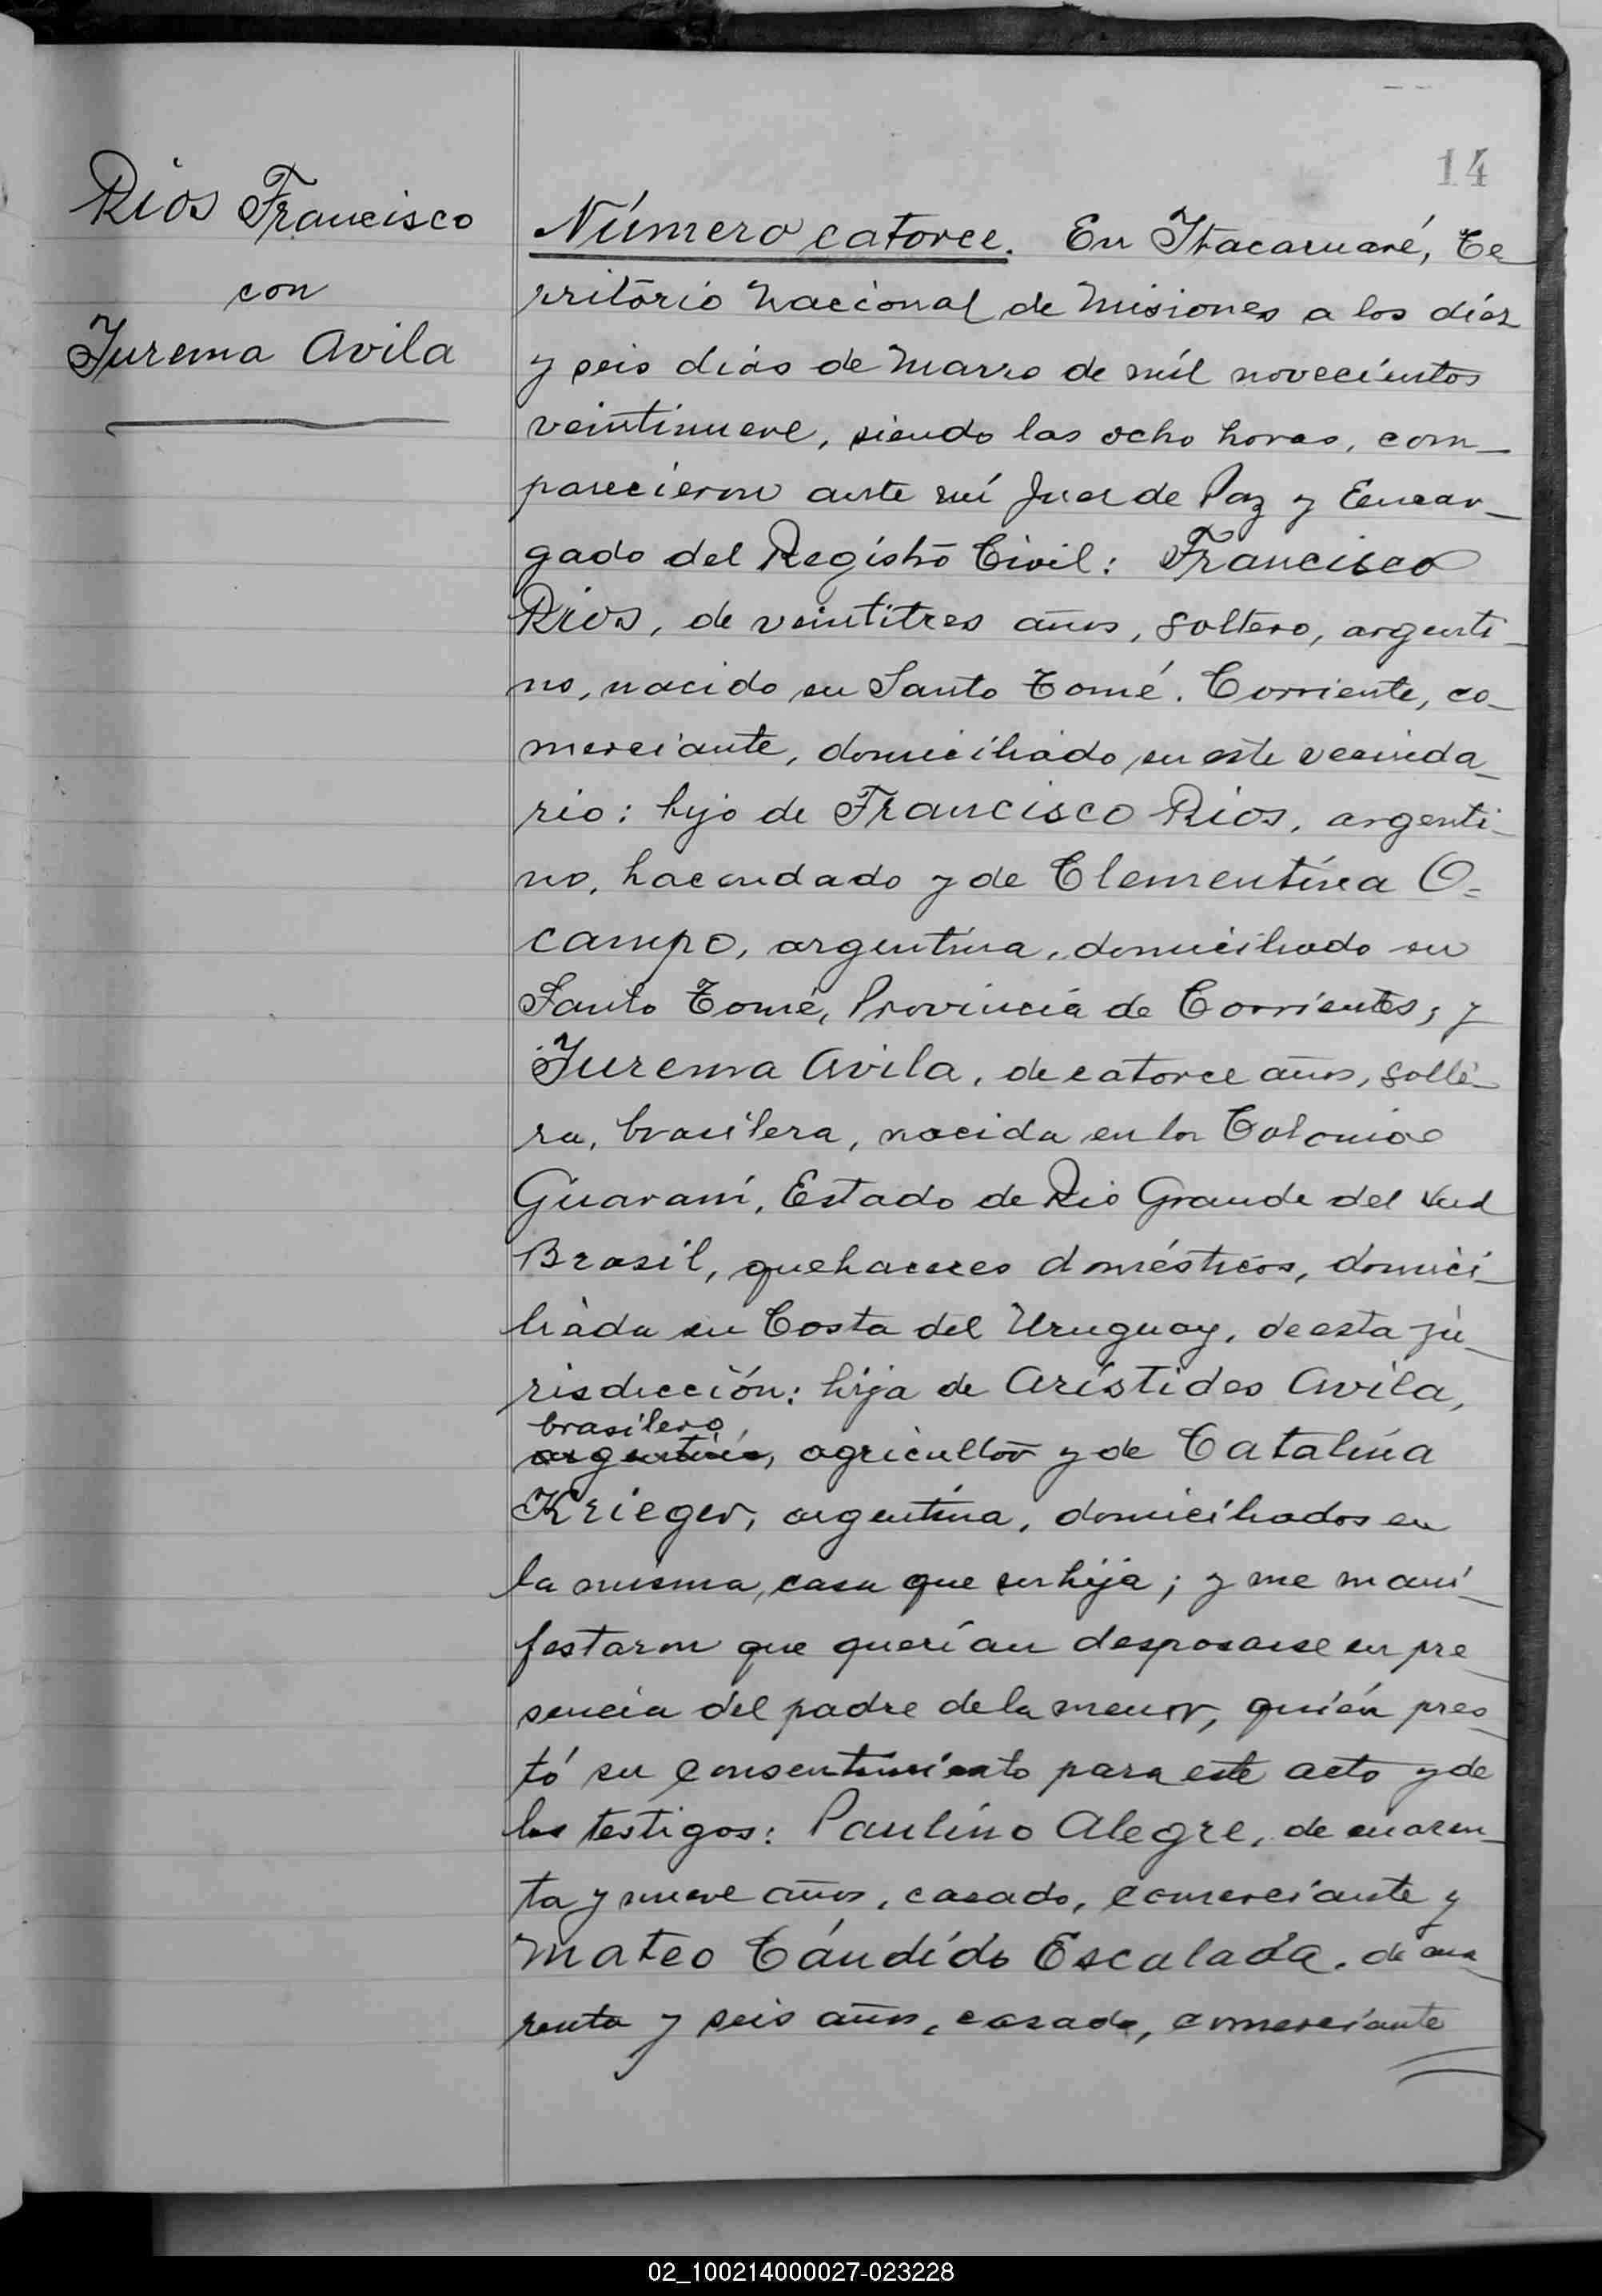 14
Rios Francisco
con
Jurema Avila
Número catorce. En Itacaruaré, Te
rritorio Nacional de Misiones a los diéz
y seis dias de Marzo de mil novecientos
veintinueve, siendo las ocho horas, com_
parecieron ante mí Juez de Paz y Encar_
gado del Registro Civil: Francisco
Rios, de veintitres años, soltero, argenti_
no, nacido en Santo Tomé. Corriente, co_
merciante, domiciliado en este vecinda_
rio: hijo de Francisco Rios, argenti_
no, hacendado y de Clementina O=
campo, argentina, domiciliado en
Santo Tomé, Provincia de Corrientes; y
Jurema Avila, de catorce años, solte_
ra, brasilera, nacida en la Colonia
Guaraní, Estado de Rio Grande del Sud
Brasil, quehaceres domésticos, domici_
liada en Costa del Uruguay, de esta ju_
risdicción: hija de Arístides Avila,
brasilero,
argentino, agricultor y de Catalina
Krieger, argentina, domiciliados en
la misma casa que su hija; y me mani_
festaron que querían desposarse en pre_
sencia del padre de la menor, quién pres_
tó su consentimiento para este acto y de
los testigos: Paulino Alegre, de cuaren_
ta y nueve años, casado, comerciante y
Mateo Cándido Escalada, de cua_
renta y seis años, casado, comerciante
02_100214000027-023228